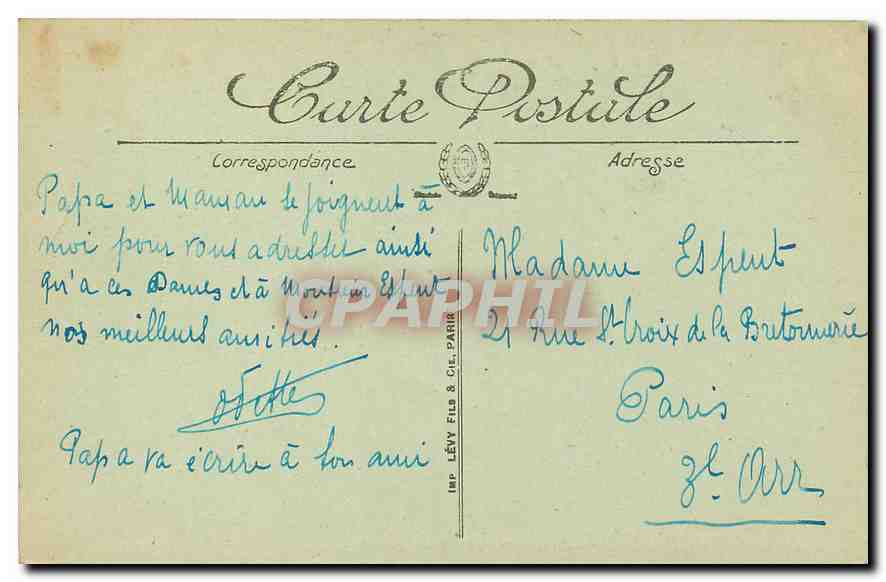 Carte Postale
Correspondance
Adresse
Papa et Maman se joignent à
moi pour vous adresser ainsi
qu'a ces Dames et à Monsieur Espent
nos meilleurs amitiés.
Odette
Papa va écrire à son ami
Madame Espent
21 Rue St Croix de la Bretonnerie
Paris
Arr
IMP LÉVY FILS & CIE, PARIS
CPAPHIL